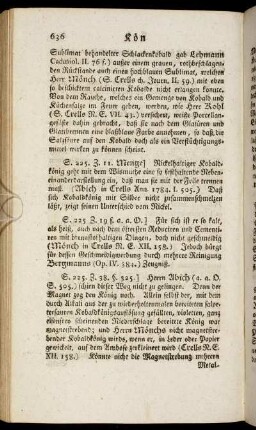 636 Kön
Sublimat behandelter Schlackenkobald gab Lehmann
Cadmiol. II. 76 f.) außer einem grauen, rothbeschlagen-
den Rückstande auch einen hochblauen Sublimat, welchen
Herr Mönch (S. Crells d. Journ. II. 59.) mit eben
so beschicktem calcinirten Kobalde nicht erlangen konnte.
Von dem Rauche, welchen ein Gemenge von Kobald und
Küchensalze im Feuer geben, werden, wie Herr Kohl
(S. Crells N. E. VII. 43.) versichert, weiße Porcellan-
gefäße dahin gebracht, daß sie nach dem Glasiren und
Glasbrennen eine blaßblaue Farbe annehmen, so daß die
Salzsäure auf den Kobald doch als ein Verflüchtigungs-
mittel wirken zu können scheint.
S. 225. Z. 11. Menge] Nickelhaltiger Kobald-
könig geht mit dem Wismuthe eine so festhaltende Neben-
einanderdarstellung ein, daß man sie mit der Feile trennen
muß. (Abich in Crells Ann. 1784. I. 505.) Daß
sich Kobaldkönig mit Silber nicht zusammenschmelzen
läßt, zeigt seinen Unterschied vom Nickel.
S. 225 Z. 19 f. a. a. O.] Für sich ist er so kalt,
als heiß, auch nach dem öftersten Reduciren und Cementi-
ren mit brennstoffhaltigen Dingen, doch nicht geschmeidig
(Mönch in Crells N. E. XII. 158.) Jedoch bürgt
für dessen Geschmeidigwerdung durch mehrere Reinigung
Bergmanns (Op. IV. 381.) Zeugniß.
S. 225. Z. 38. S. 525.] Herrn Abich (a. a. O.
S. 505.) schien dieser Weg nicht zu gelingen. Denn der
Magnet zog den König noch. Allein selbst der, mit dem
durch Alkali aus der zu wiederholtenmalen bereiteten salpe-
tersauren Kobaldkönigauflösung gefällten, violetten, ganz
eisenfrey scheinenden Niederschlage bereitete König war
magnetstrebend; und Herrn Mönchs nicht magnetstre-
bender Kobaldkönig wirds, wenn er, in Leder oder Papier
gewickelt, auf dem Ambose zerkleinet wird (Crells N. E.
XII. 158.) Könnte nicht die Magnetstrebung mehreren
Metal-